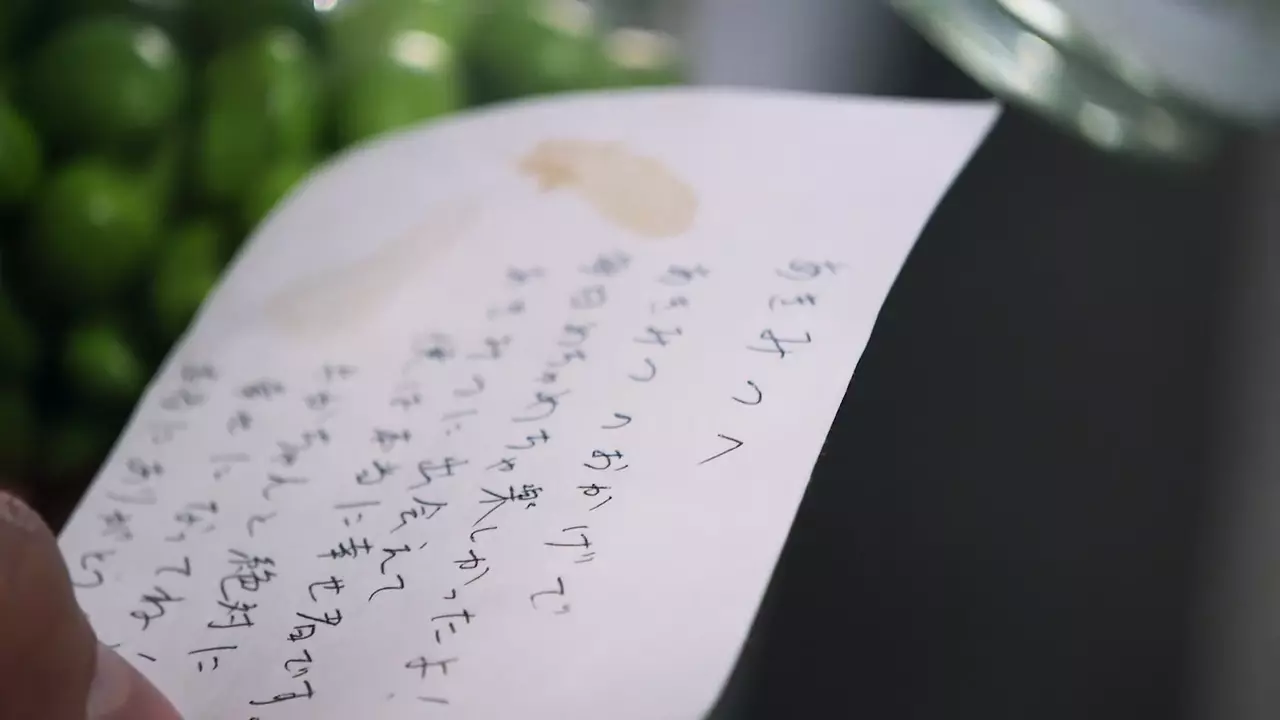 あきみつへ
あきみつのおかげで
毎日めちゃめちゃ楽しかったよ!
あきみつに出会えて
僕は本当に幸せ者です。
絶対に
幸せになってね!
本当にありがとう